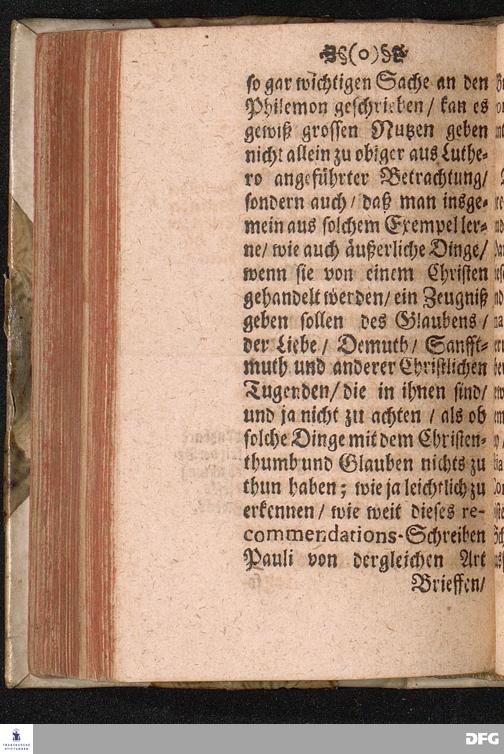 (0)
so gar wichtigen Sache an den
Philemon geschrieben / kan es
gewiß grossen Nutzen geben
nicht allein zu obiger aus Luthe-
ro angeführter Betrachtung /
sondern auch / daß man insge-
mein aus solchem Exempel ler-
ne / wie auch äußerliche Dinge /
wenn sie von einem Christen
gehandelt werden / ein Zeugniß
geben sollen des Glaubens /
der Liebe / Demuth / Sanfft-
muth und anderer Christlichen
Tugenden / die in ihnen sind /
und ja nicht zu achten / als ob
solche Dinge mit dem Christen-
thumb und Glauben nichts zu
thun haben ; wie ja leichtlich zu
erkennen / wie weit dieses re-
commendations-Schreiben
Pauli von dergleichen Art
Brieffen /
FRANCKESCHE
STIFTUNGEN
DFG